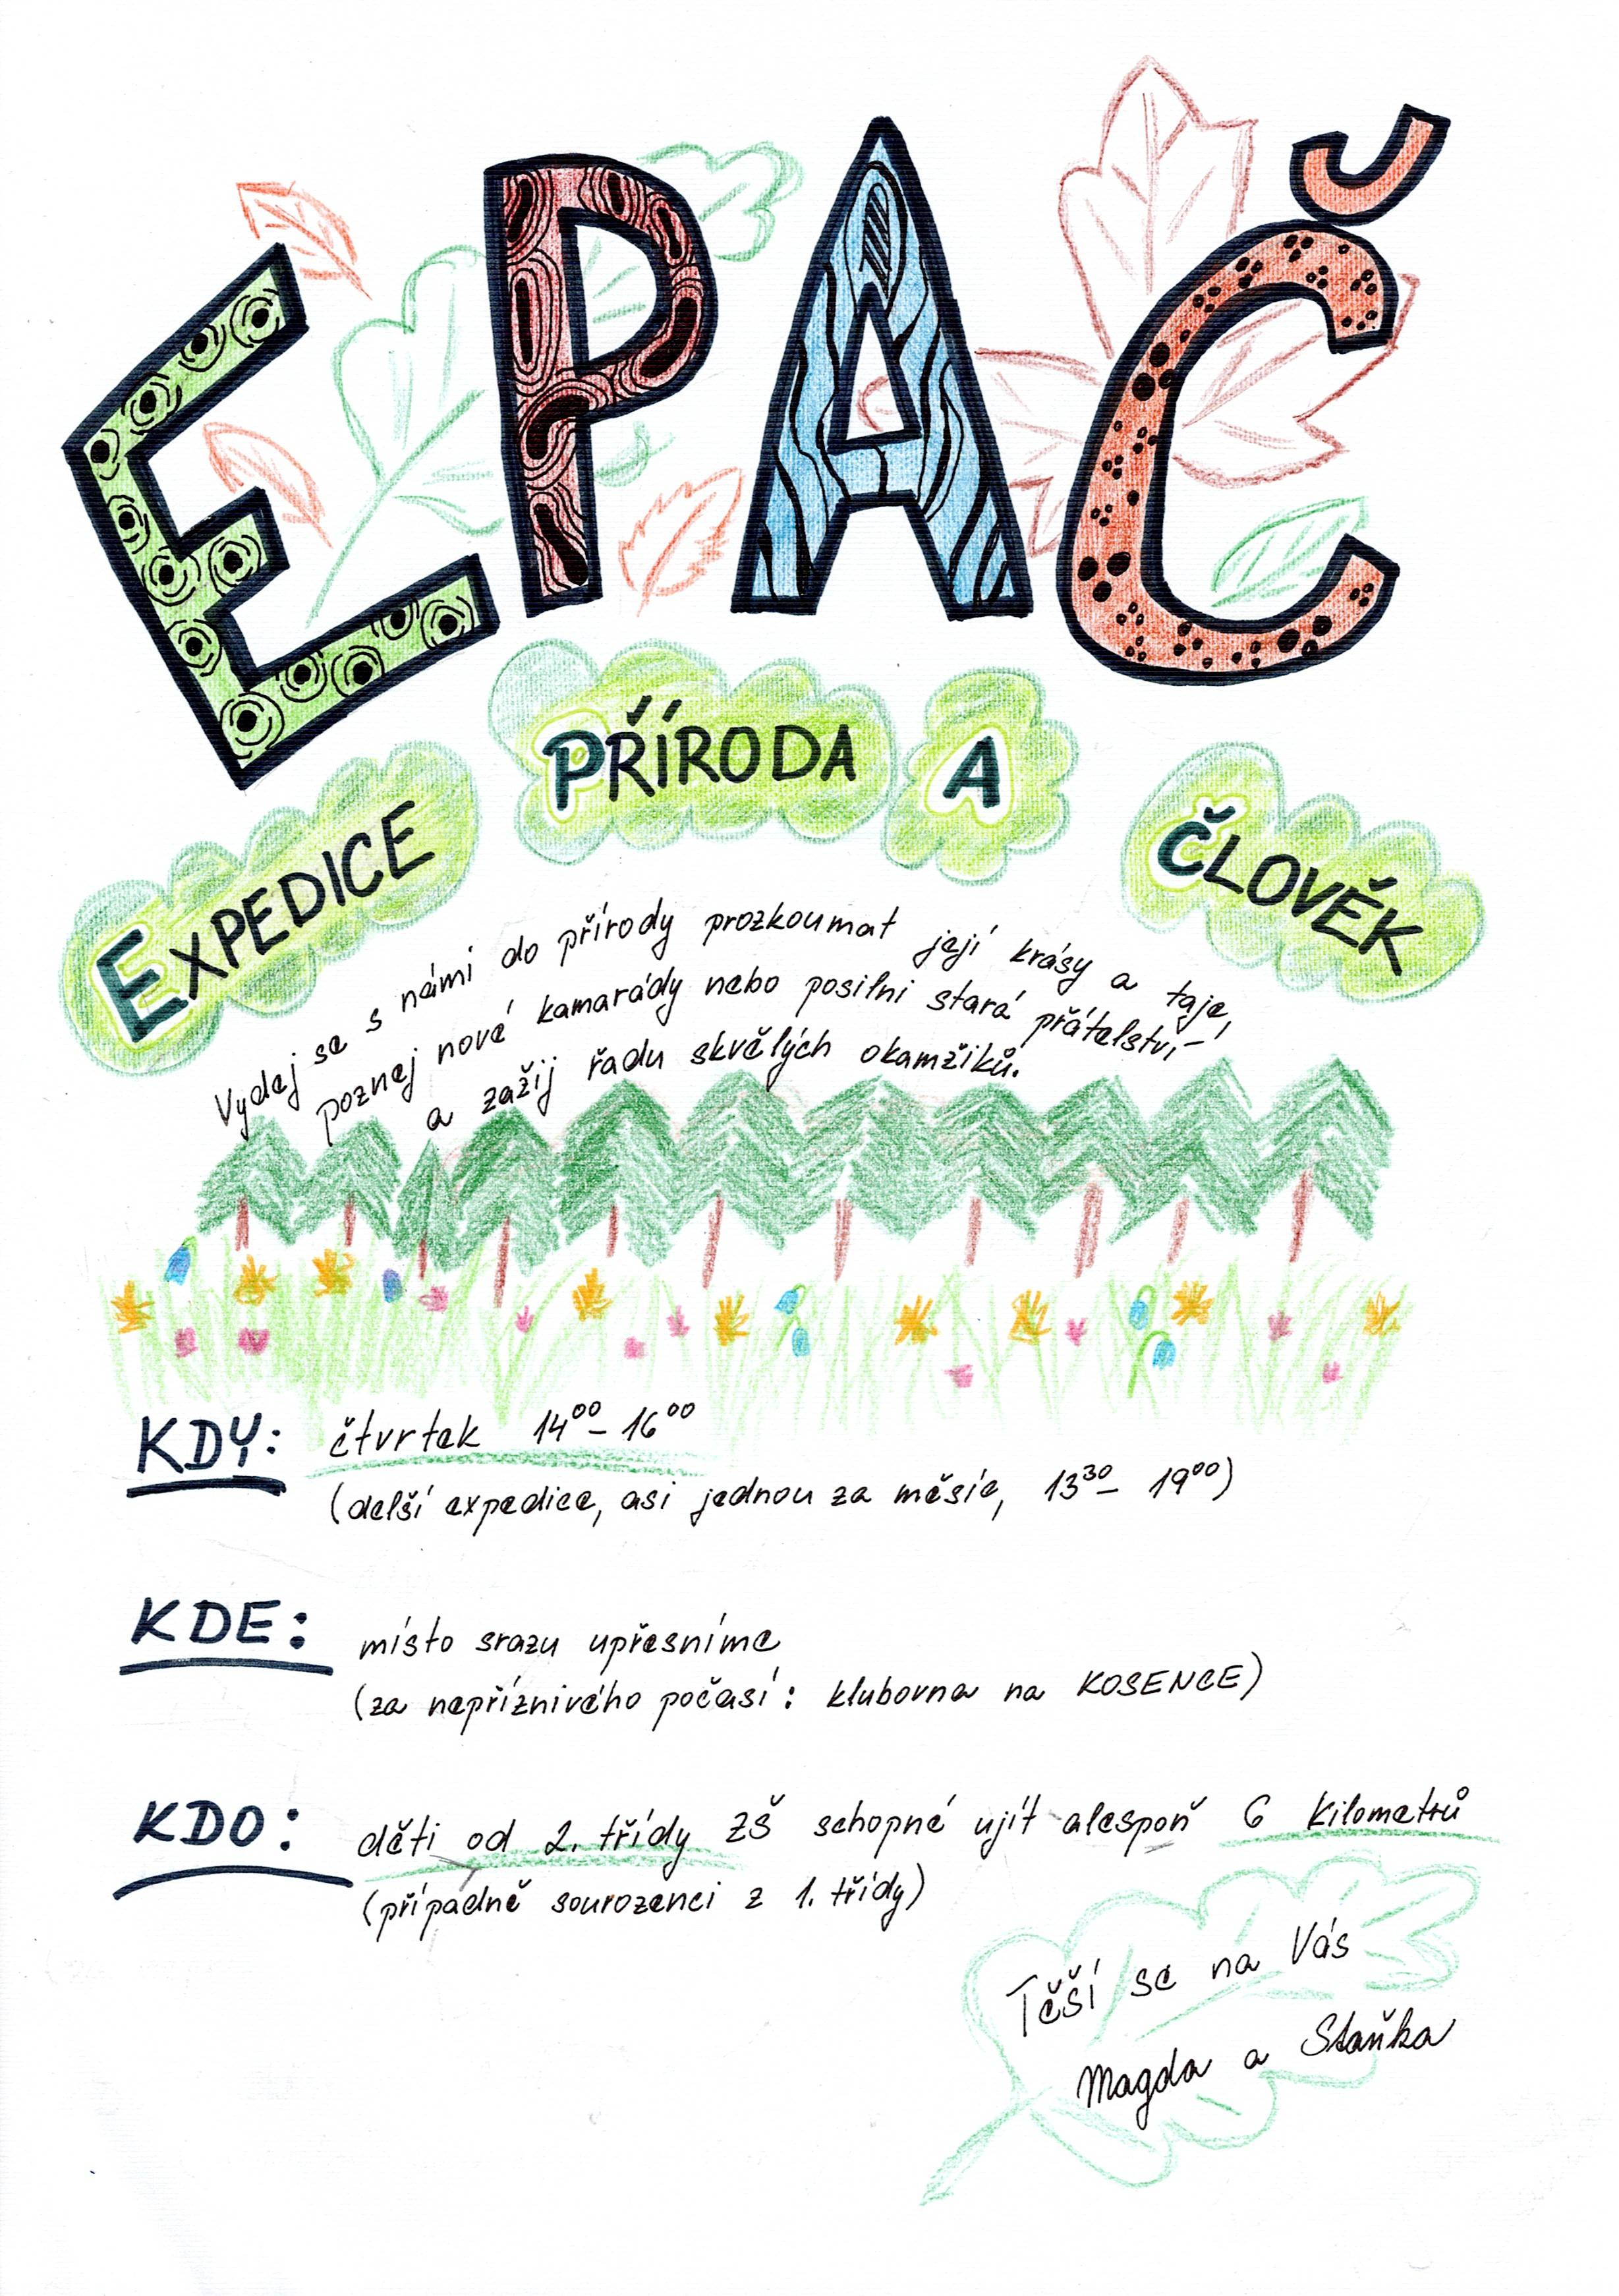 EPAČ
EXPEDICE PŘÍRODA A ČLOVĚK
Vydej se s námi do přírody prozkoumat její krásy a taje,
poznej nové kamarády nebo posilni stará přátelství
a zažij řadu skvělých okamžiků.
KDY: čtvrtek 14⁰⁰ - 16⁰⁰
(delší expedice, asi jednou za měsíc, 13³⁰ - 19⁰⁰)
KDE: místo srazu upřesníme
(za nepříznivého počasí: klubovna na KOSENCE)
KDO: děti od 2. třídy ZŠ schopné ujít alespoň 6 kilometrů
(případně sourozenci z 1. třídy)
Těší se na Vás
Magda a Staňka